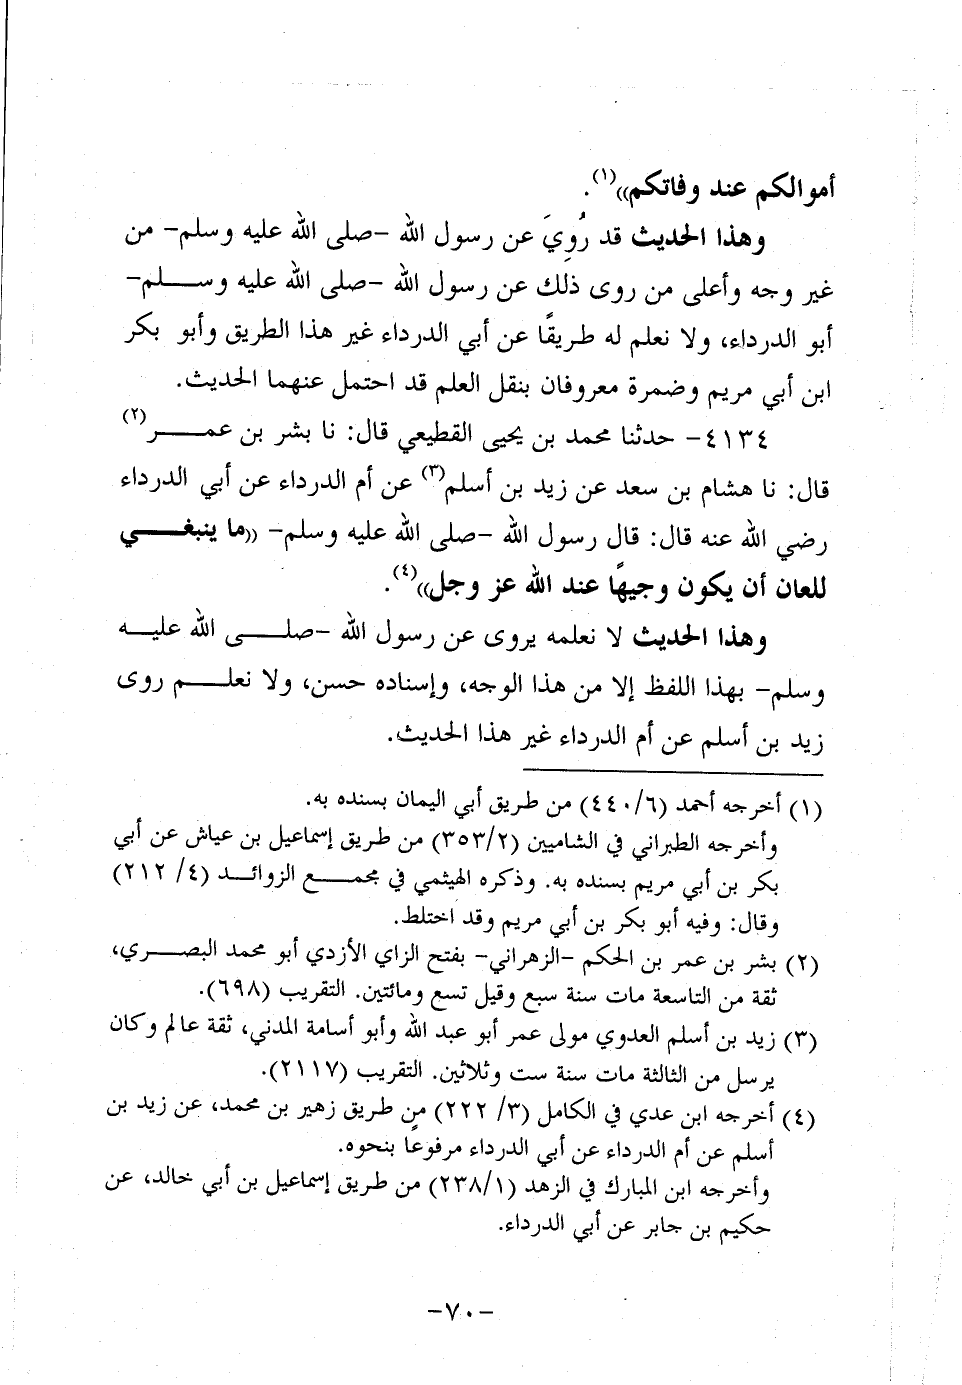 أموالكم عند وفاتكم»(١).
وهذا الحديث قد رُوِيَ عن رسول الله -صلى الله عليه وسلم- من
غير وجه وأعلى من روى ذلك عن رسول الله -صلى الله عليه وسلم-
أبو الدرداء، ولا نعلم له طريقًا عن أبي الدرداء غير هذا الطريق وأبو بكر
ابن أبي مريم وضمرة معروفان بنقل العلم قد احتمل عنهما الحديث.
٤١٣٤- حدثنا محمد بن يحيى القطيعي قال: نا بشر بن عمر(٢)
قال: نا هشام بن سعد عن زيد بن أسلم(٣) عن أم الدرداء عن أبي الدرداء
رضي الله عنه قال: قال رسول الله -صلى الله عليه وسلم- «ما ينبغي
للعان أن يكون وجيهًا عند الله عز وجل»(٤).
وهذا الحديث لا نعلمه يروى عن رسول الله -صلى الله عليه
وسلم- بهذا اللفظ إلا من هذا الوجه، وإسناده حسن، ولا نعلم روى
زيد بن أسلم عن أم الدرداء غير هذا الحديث.
(١) أخرجه أحمد (٤٤٠/٦) من طريق أبي اليمان بسنده به.
وأخرجه الطبراني في الشاميين (٣٥٣/٢) من طريق إسماعيل بن عياش عن أبي
بكر بن أبي مريم بسنده به. وذكره الهيثمي في مجمع الزوائد (٤/ ٢١٢)
وقال: وفيه أبو بكر بن أبي مريم وقد اختلط.
(٢) بشر بن عمر بن الحكم -الزهراني- بفتح الزاي الأزدي أبو محمد البصري،
ثقة من التاسعة مات سنة سبع وقيل تسع ومائتين. التقريب (٦٩٨).
(٣) زيد بن أسلم العدوي مولى عمر أبو عبد الله وأبو أسامة المدني، ثقة عالم وكان
يرسل من الثالثة مات سنة ست وثلاثين. التقريب (٢١١٧).
(٤) أخرجه ابن عدي في الكامل (٣/ ٢٢٢) من طريق زهير بن محمد، عن زيد بن
أسلم عن أم الدرداء عن أبي الدرداء مرفوعًا بنحوه.
وأخرجه ابن المبارك في الزهد (٢٣٨/١) من طريق إسماعيل بن أبي خالد، عن
حكيم بن جابر عن أبي الدرداء.
-٧٠-